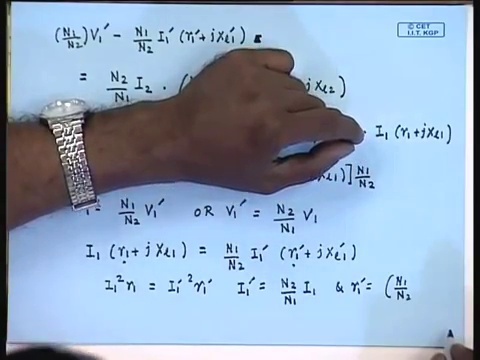 (N1/N2) V1' - N1/N2 I1' (r1' + j xl1')
© CET
I.I.T. KGP
= N2/N1 I2 · ( j xl2)
I1 (r1 + j xl1)
] N1/N2
= N1/N2 V1' OR V1' = N2/N1 V1
I1 (r1 + j xl1) = N1/N2 I1' (r1' + j xl1')
I1² r1 = I1'² r1' I1' = N2/N1 I1 & r1' = (N1/N2